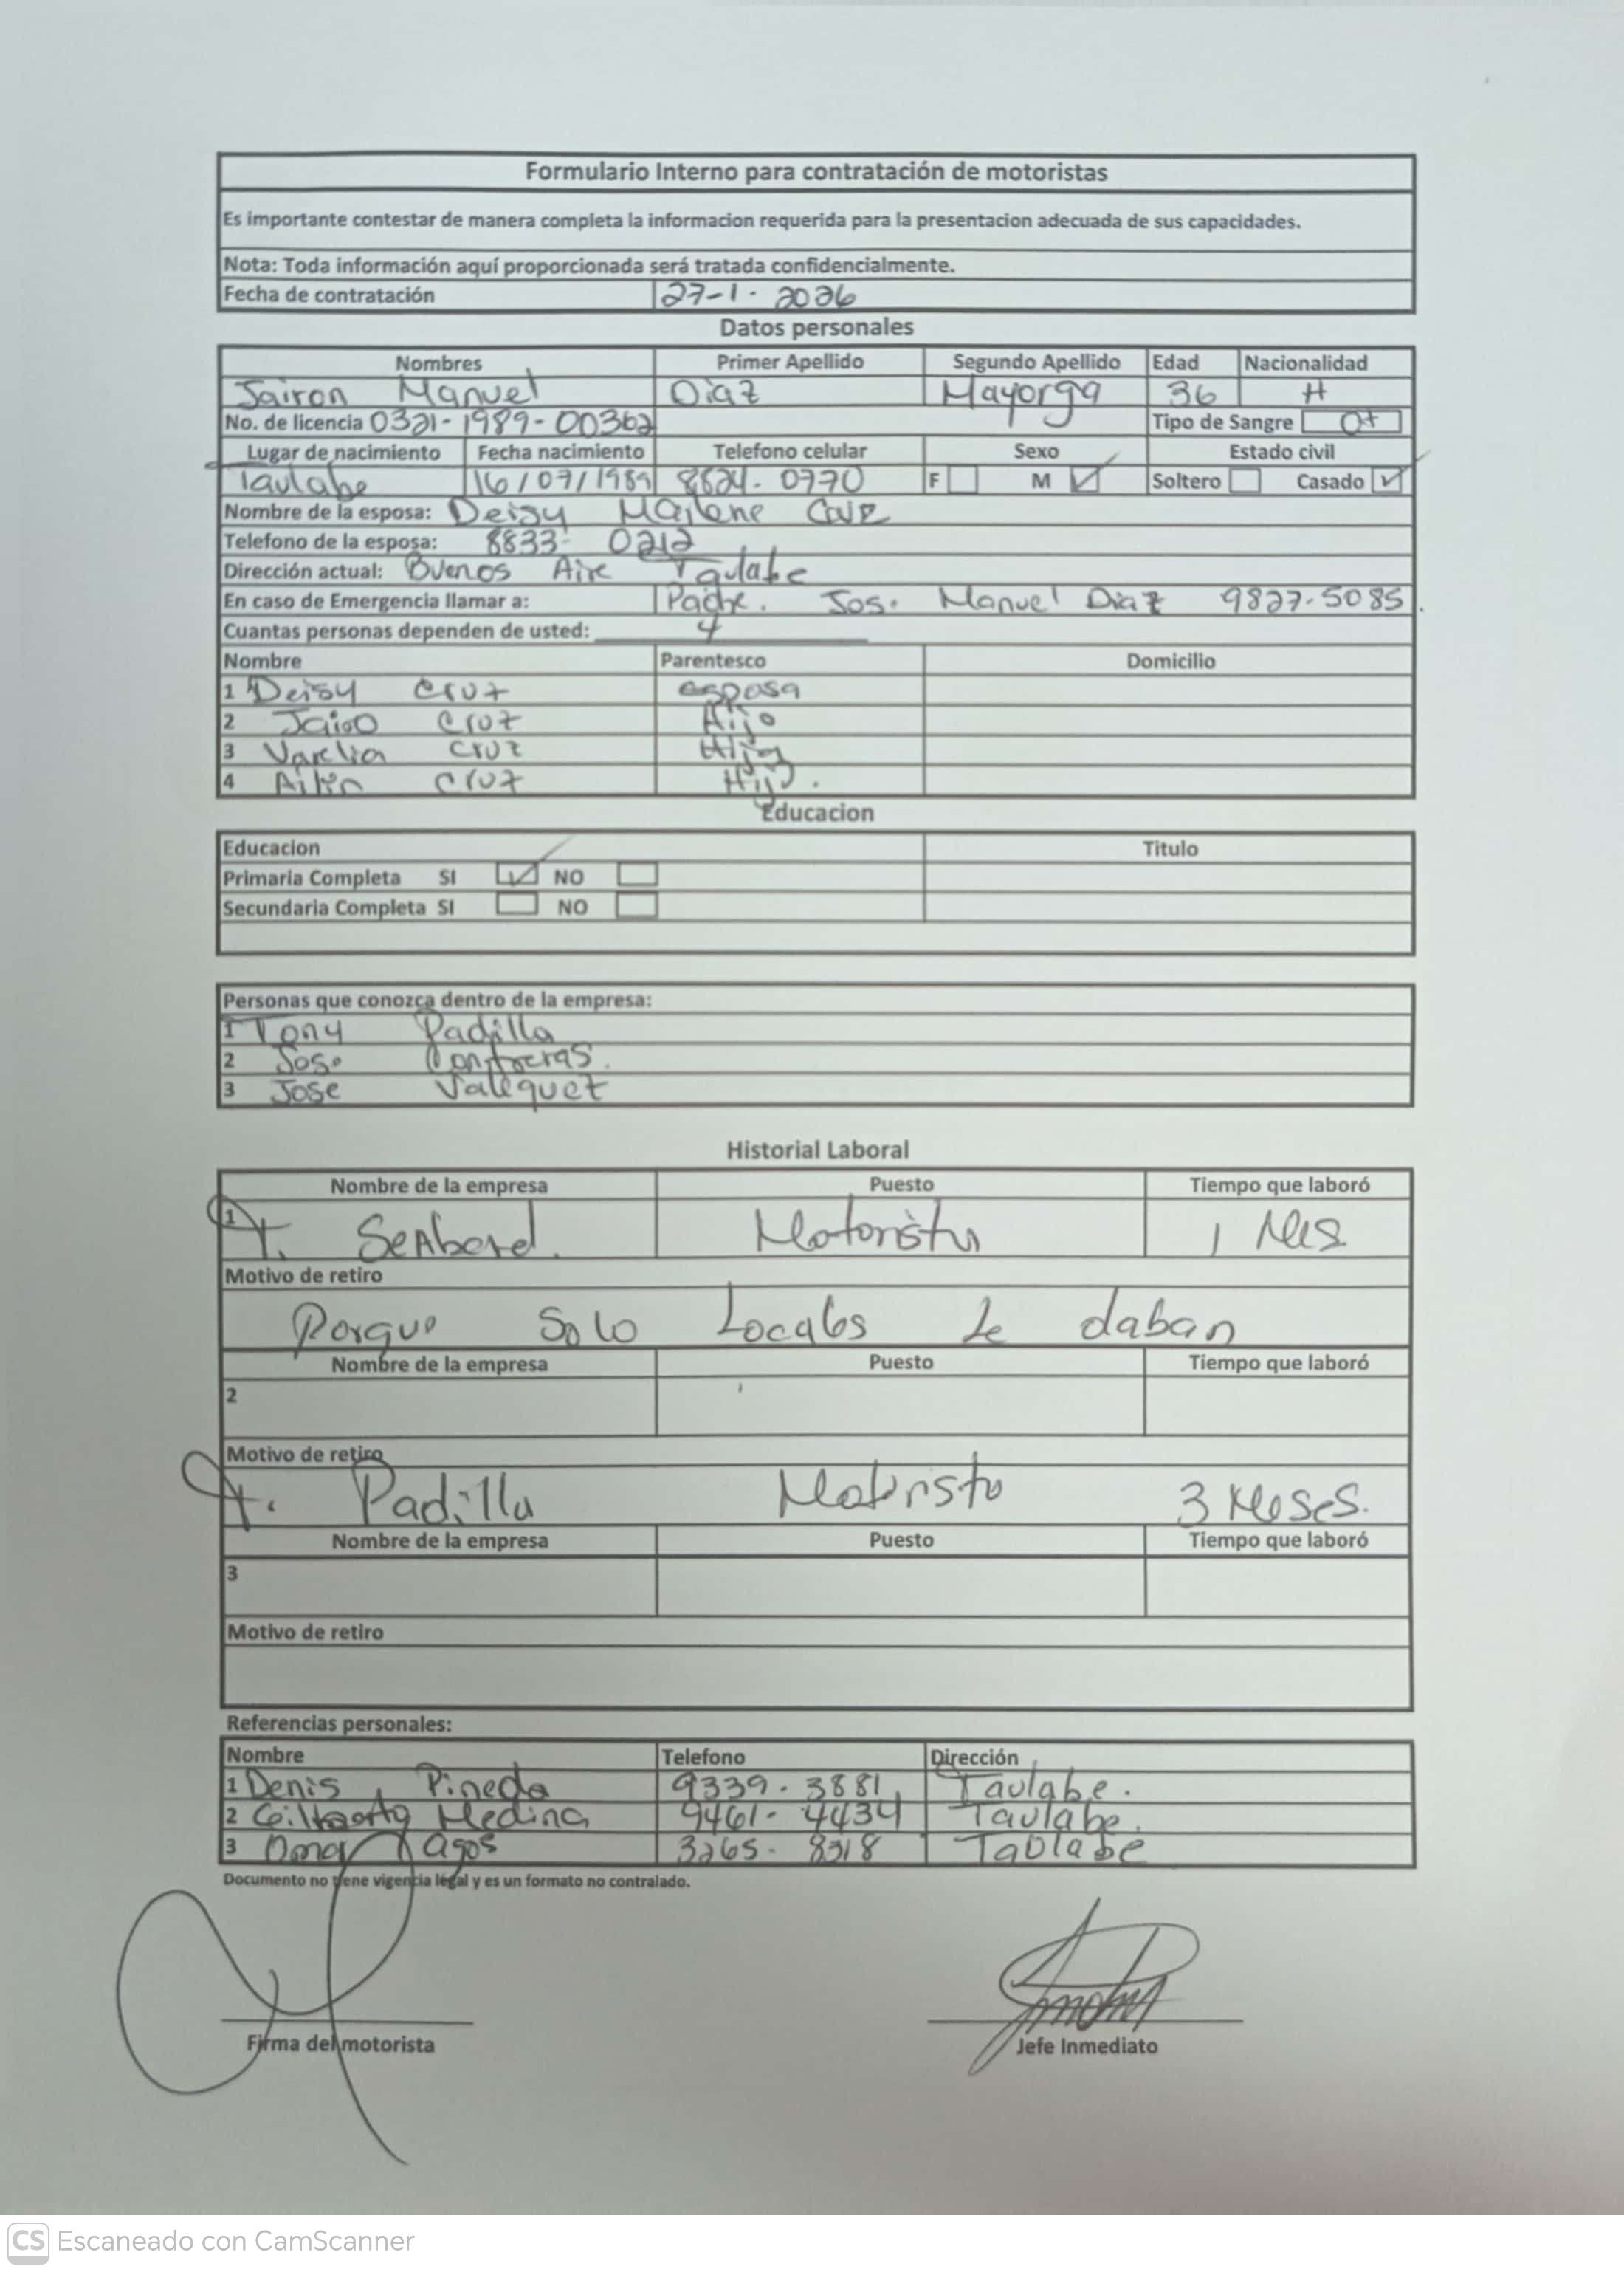 Formulario Interno para contratación de motoristas
Es importante contestar de manera completa la informacion requerida para la presentacion adecuada de sus capacidades.
Nota: Toda información aquí proporcionada será tratada confidencialmente.
Fecha de contratación 27-1-2026
Datos personales
Nombres Primer Apellido Segundo Apellido Edad Nacionalidad
Jairon Manuel Diaz Mayorga 36 H
No. de licencia 0321-1989-00362 Tipo de Sangre O+
Lugar de nacimiento Fecha nacimiento Telefono celular Sexo Estado civil
Taulabe 16/07/1989 8824-0770 F M Soltero Casado
Nombre de la esposa: Deisy Marlene Cruz
Telefono de la esposa: 8833 0212
Dirección actual: Buenos Aire Taulabe
En caso de Emergencia llamar a: Padre. Jos. Manuel Diaz 9827-5085.
Cuantas personas dependen de usted: 4
Nombre Parentesco Domicilio
1 Deisy Cruz esposa
2 Cruz Hijo
3 Cruz Hija
4 Cruz
Educacion
Educacion Titulo
Primaria Completa SI NO
Secundaria Completa SI NO
Personas que conozca dentro de la empresa:
1 Tony Padilla
2 Contreras.
3 Jose
Historial Laboral
Nombre de la empresa Puesto Tiempo que laboró
1 T. Seabord. Motorista 1 Mes
Motivo de retiro
Porque Solo Locales Le daban
Nombre de la empresa Puesto Tiempo que laboró
2
Motivo de retiro
T. Padilla Motoristo 3 Meses.
Nombre de la empresa Puesto Tiempo que laboró
3
Motivo de retiro
Referencias personales:
Nombre Telefono Dirección
1 Denis Pineda 9339-3881 Taulabe.
2 Medina 9461-4434 Taulabe.
3 Omar 3265- Taulabe
Documento no tiene vigencia légal y es un formato no contralado.
Firma del motorista Jefe Inmediato
CS Escaneado con CamScanner